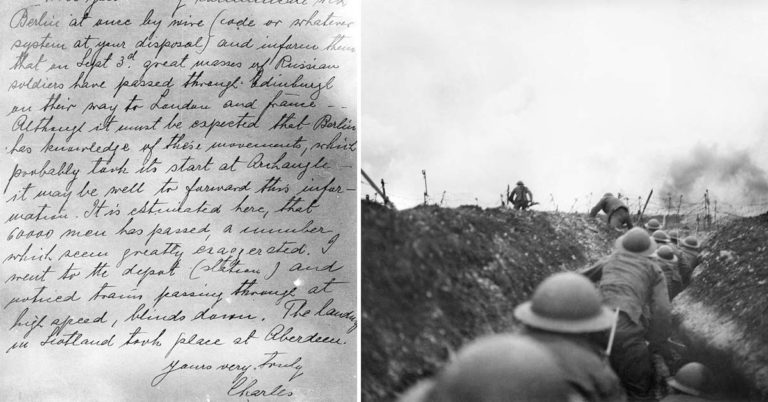 communicate with
Berlin at once by wire (code or whatever
system at your disposal) and inform them
that on Sept 3d. great masses of Russian
soldiers have passed through Edinburgh
on their way to London and France --
Although it must be expected that Berlin
has knowledge of these movements, which
probably took its start at Archangle --
it may be well to forward this infor-
mation. It is estimated here, that
60000 men has passed a number
which seem greatly exagerated. I
went to the depot (station) and
noticed trains passing through at
high speed, blinds down. The landing
in Scotland took place at Aberdeen.
Yours very truly
Charles